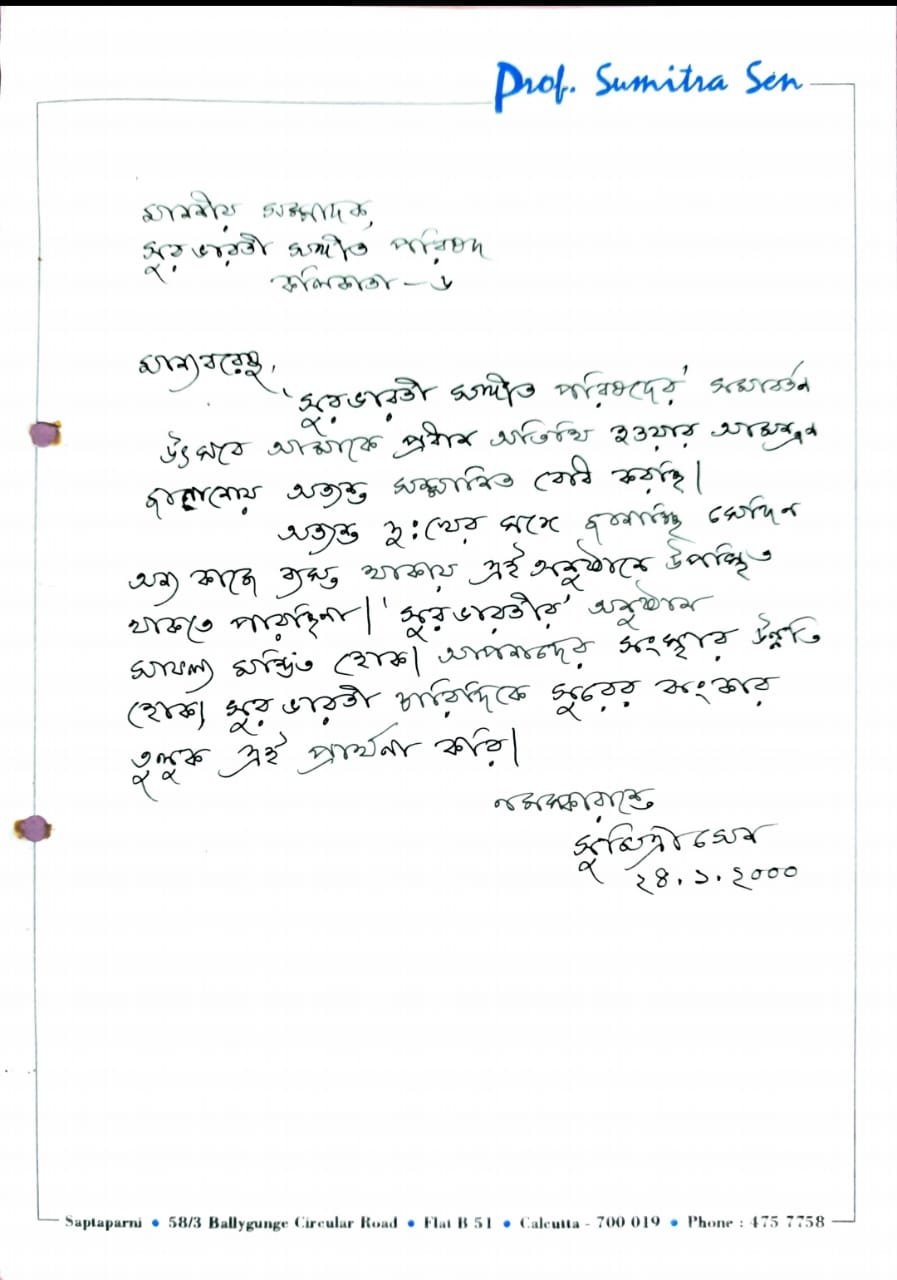 Prof. Sumitra Sen
মাননীয় সম্পাদক,
সুর ভারতী সঙ্গীত পরিষদ
কলিকাতা - ৬
মান্যবরেষু,
'সুরভারতী সঙ্গীত পরিষদের' সমাবর্তন
উৎসবে আমাকে প্রধান অতিথি হওয়ার আমন্ত্রন
জানানোয় অত্যন্ত সম্মানিত বোধ করছি।
অত্যন্ত দুঃখের সঙ্গে জানাচ্ছি সেদিন
অন্য কাজে ব্যস্ত থাকায় এই অনুষ্ঠানে উপস্থিত
থাকতে পারছিনা। 'সুর ভারতীর' অনুষ্ঠান
সাফল্য মন্ডিত হোক। আপনাদের সংস্থার উন্নতি
হোক। সুর ভারতী চারিদিকে সুরের ঝংকার
তুলুক এই প্রার্থনা করি।
নমস্কারান্তে
সুমিত্রা সেন
২৪.১.২০০০
Saptaparni • 58/3 Ballygunge Circular Road • Flat B 51 • Calcutta - 700 019 • Phone : 475 7758